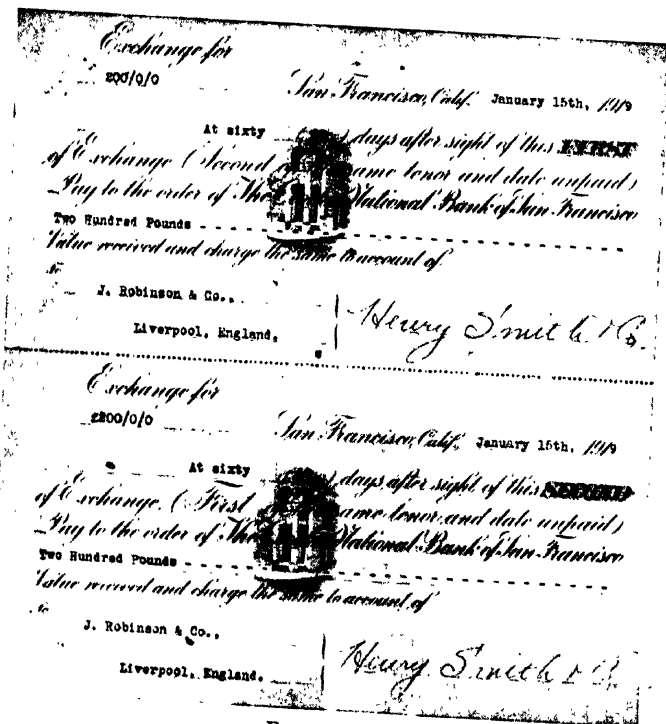 Exchange for
£200/0/0
San Francisco, Calif. January 15th, 1919
At sixty days after sight of this FIRST
of Exchange (Second of same tenor and date unpaid)
Pay to the order of The National Bank of San Francisco
Two Hundred Pounds
Value received and charge the same to account of
To
J. Robinson & Co.,
Liverpool, England.
Henry Smith & Co.
Exchange for
£200/0/0
San Francisco, Calif. January 15th, 1919
At sixty days after sight of this SECOND
of Exchange. (First same tenor and date unpaid)
Pay to the order of The National Bank of San Francisco
Two Hundred Pounds
Value received and charge the same to account of
To
J. Robinson & Co.,
Liverpool, England.
Henry Smith & Co.